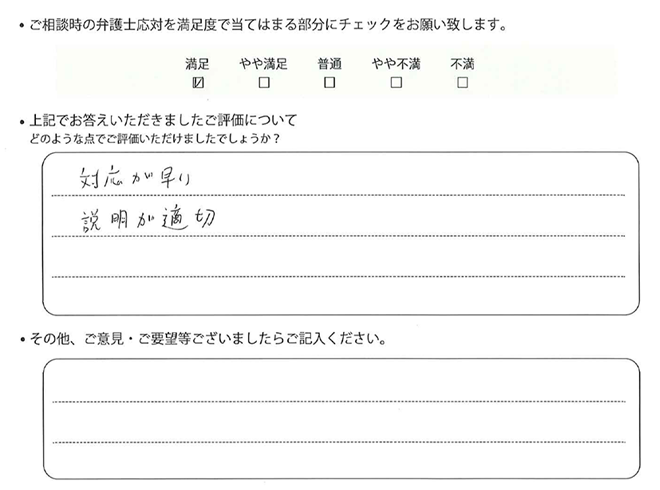 ・ご相談時の弁護士応対を満足度で当てはまる部分にチェックをお願い致します。
満足 やや満足 普通 やや不満 不満
☑ ☐ ☐ ☐ ☐
・上記でお答えいただきましたご評価について
どのような点でご評価いただけましたでしょうか？
対応が早い
説明が適切
・その他、ご意見・ご要望等ございましたらご記入ください。